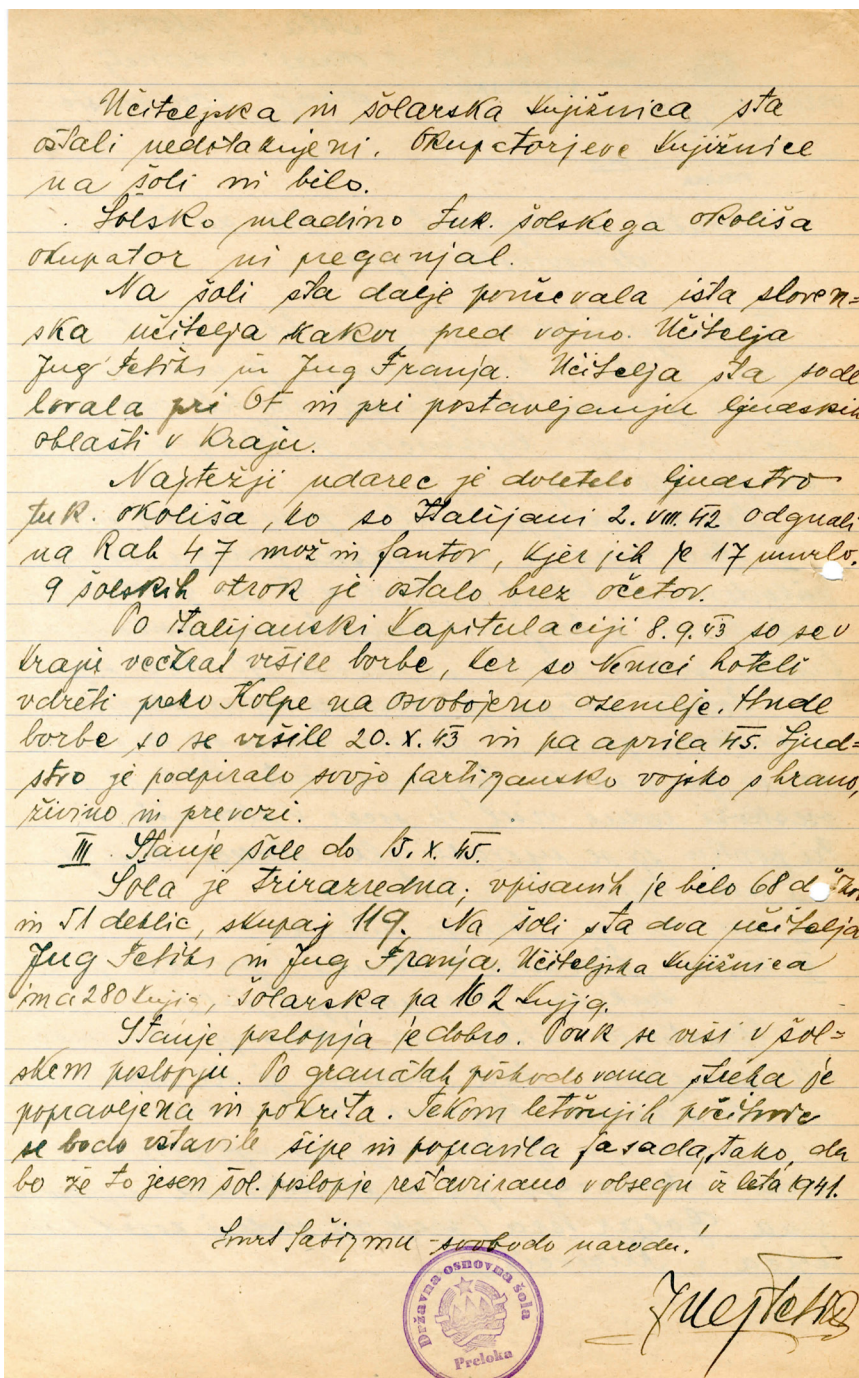 Učiteljska in šolarska knjižnica sta
ostali nedotaknjeni. Okupatorjeve knjižnice
na šoli ni bilo.
Šolsko mladino tuk. šolskega okoliša
okupator ni preganjal.
Na šoli sta dalje poučevala ista sloven=
ska učitelja kakor pred vojno. Učitelja
Jug Feliks in Jug Franja. Učitelja sta sode
lovala pri OF in pri postavljanju ljudskih
oblasti v kraju.
Najtežji udarec je doletelo ljudstvo
tuk. okoliša, ko so Italijani 2. VIII. 42 odgnali
na Rab 47 mož in fantov, kjer jih je 17 umrlo.
9 šolskih otrok je ostalo brez očetov.
Po italijanski kapitulaciji 8.9.43 so se v
kraju večkrat vršile borbe, ker so Nemci hoteli
vdreti preko Kolpe na osvobojeno ozemlje. Hude
borbe so se vršile 20. X. 43 in pa aprila 45. Ljud=
stvo je podpiralo svojo partizansko vojsko s hrano,
živino in prevozi.
III. Stanje šole do 15. X. 45.
Šola je trirazredna; vpisanih je bilo 68
in 51 deklic, skupaj 119. Na šoli sta dva učitelja
Jug Feliks in Jug Franja. Učiteljska knjižnica
ima 280 knjig, šolarska pa 162 knjig.
Stanje poslopja je dobro. Pouk se vrši v šol=
skem poslopju. Po granatah poškodovana streha je
popravljena in pokrita. Tekom letošnjih počitnic
se bodo vstavile šipe in popravila fasada, tako, da
bo že to jesen šol. poslopje reštavrirano v obsegu iz leta 1941.
Smrt fašizmu - svobodo narodu!
Državna osnovna šola
Preloka
Jug Feliks